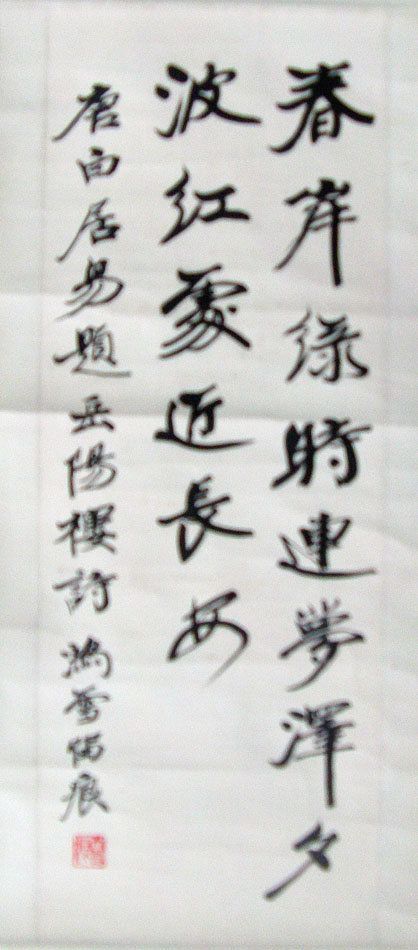 春岸綠時連夢澤夕
波紅處近長安
唐白居易題岳陽樓詩 鴻雪留痕